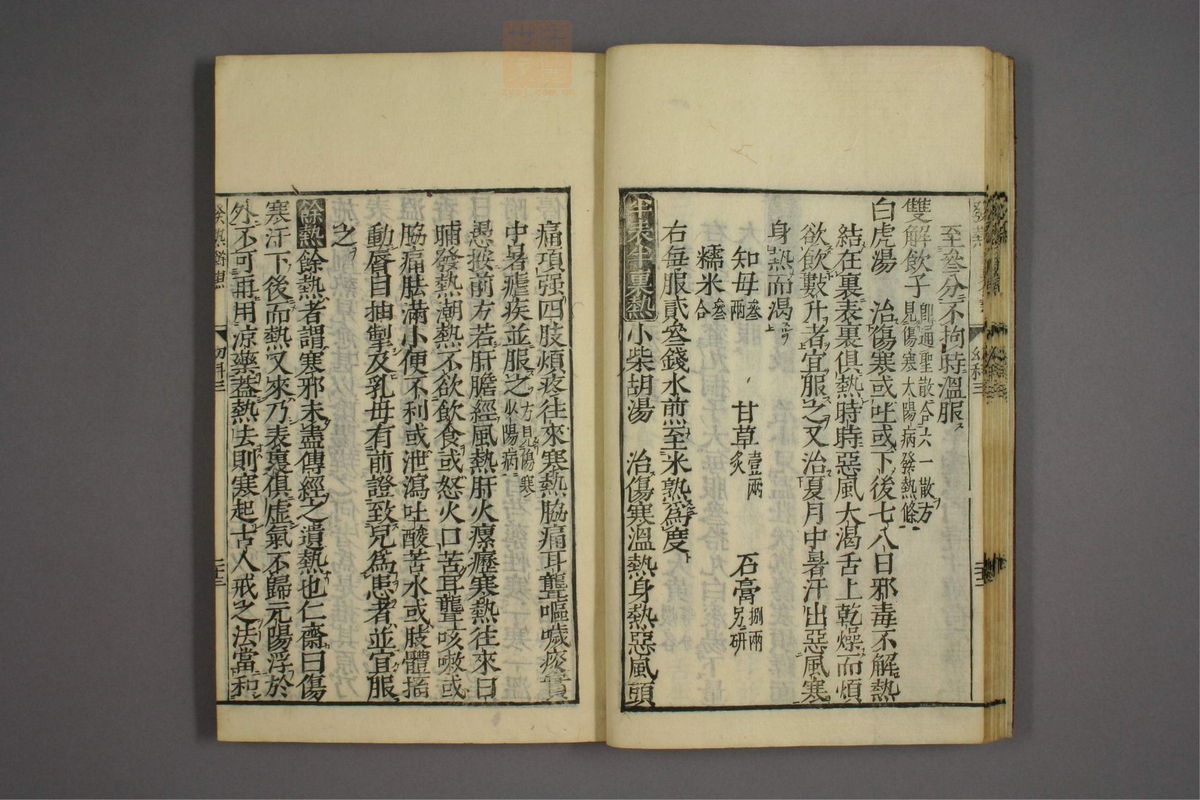 至叄分不拘時溫服
雙解飲子 卽通聖散合六一散方見傷寒太陽病發熱條
白虎湯 治傷寒或吐或下後七八日邪毒不解熱
結在裏表裏俱熱時時惡風大渴舌上乾燥而煩
欲飲數升者宜服之又治夏月中暑汗出惡風寒
身熱而渴
知母叄兩 甘草炙壹兩 石膏捌兩另研
糯米叄合
右每服貳叄錢水煎至米熟爲度
半表半裏熱 小柴胡湯 治傷寒溫熱身熱惡風頭
痛項强四肢煩疼往來寒熱脇痛耳聾嘔噦痰實
中暑瘧疾並服之 方見傷寒少陽病
愚按前方若肝膽經風熱肝火瘰癧寒熱往來日
晡發熱潮熱不欲飲食或怒火口苦耳聾咳嗽或
脇痛胠滿小便不利或泄瀉吐酸苦水或肢體搐
動唇目抽掣及乳母有前證致兒爲患者並宜服
之
餘熱 餘熱者謂寒邪未盡傳經之遺熱也仁齋曰傷
寒汗下後而熱又來乃表裏俱虛氣不歸元陽浮於
外不可再用凉藥葢熱去則寒起古人戒之法當和